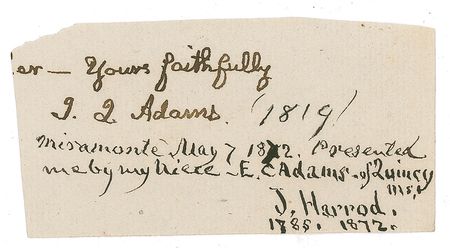 er— Yours faithfully
J. Q. Adams. (1819)
Miramonte May 7 1872. Presented
me by my Niece - E. C Adams - of Quincy
Ms.
J. Harrod.
1785. 1872.